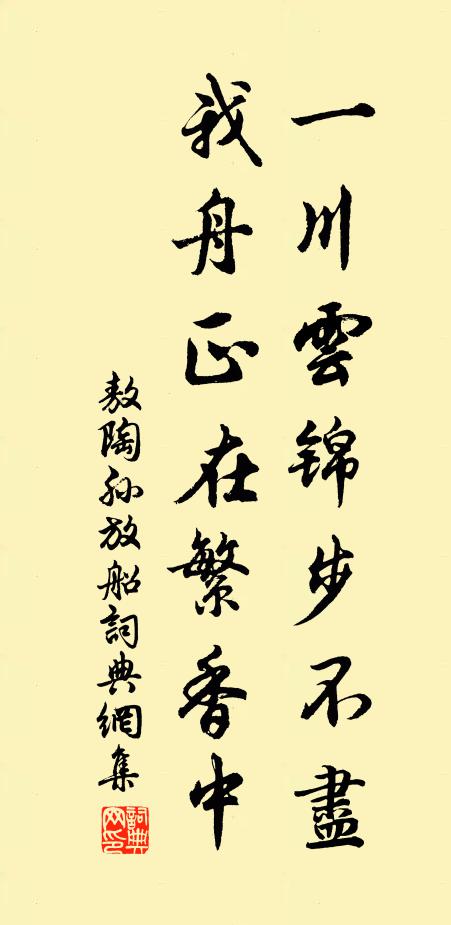 一川雲锦步不盡
我舟正在繁香中
敖陶孙放船詞典網集
詞典網印